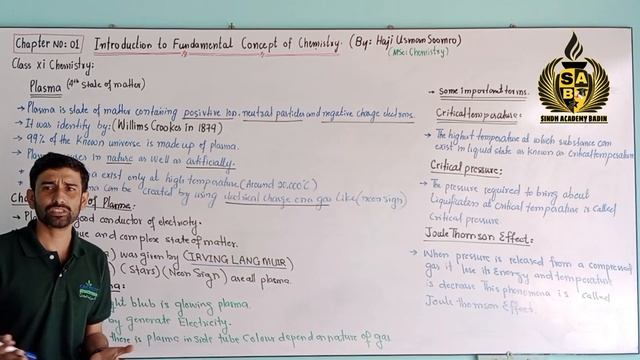 Chapter NO: 01 Introduction to Fundamental Concept of Chemistry. (By: Haji Usman Soomro)
(MSci Chemistry)
Class xi Chemistry:
Plasma (4th state of matter)
Plasma is state of matter containing positive Ion, neutral particles and negative charge electrons.
It was identify by: (Willims Crookes in 1879)
99% of the known universe is made up of plasma.
in nature as well as artificially.
exist only at high temperature (Around 20,000°C)
can be created by using electrical charge on a gas like (neon sign)
of Plasma:
good conductor of electricity.
and complex state of matter.
was given by (IRVING LANGMUIR)
(Stars) (Neon Sign) are all plasma.
light blub is glowing plasma.
by generate Electricity.
there is plasma inside tube colour depend on nature of gas
Some important terms.
Critical temperature:
The highest temperature at which substance can
exist in liquid state as known as critical temperature
Critical pressure:
The pressure required to bring about
Liquifaction at critical temperature is called
Critical pressure.
Joule Thomson Effect:
When pressure is released from a compressed
gas it lose its Energy and temperature
is decrease This phenomena is called
Joule Thomson Effect.
SABN
SINDH ACADEMY BADIN